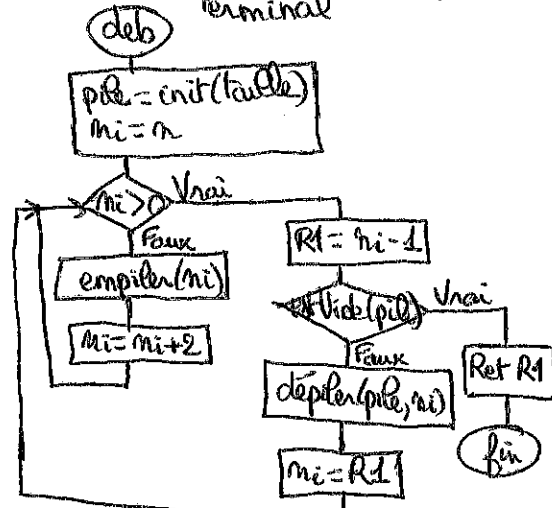 Terminal
deb
pile = init(taille)
ni = n
ni > 0
Vrai
Faux
empiler(ni)
ni = ni + 2
R1 = ni - 1
estVide(pile)
Vrai
Faux
dépiler(pile, ni)
ni = R1
Ret R1
fin